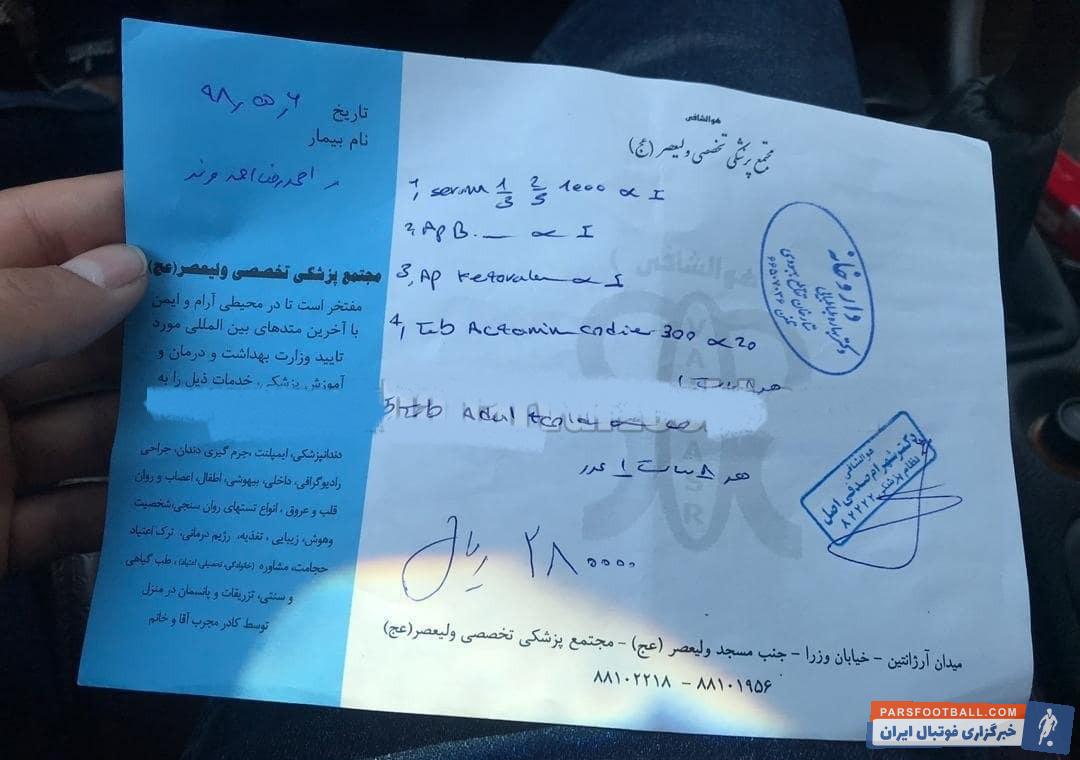 تاریخ ۹۸٫۵۵٫۶
نام بیمار
احمدرضا احمدوند
مجتمع پزشکی تخصصی ولیعصر(عج)
مفتخر است تا در محیطی آرام و ایمن
با آخرین متدهای بین المللی مورد
تایید وزارت بهداشت و درمان و
آموزش پزشکی، خدمات ذیل را به
دندانپزشکی، ایمپلنت، جرم گیری دندان، جراحی
رادیوگرافی، داخلی، بیهوشی، اطفال، اعصاب و روان
قلب و عروق، انواع تستهای روان سنجی،شخصیت
وهوش، زیبایی، تغذیه، رژیم درمانی، ترک اعتیاد
حجامت، مشاوره (خانوادگی، تحصیلی، اعتیاد)، طب گیاهی
و سنتی، تزریقات و پانسمان در منزل
توسط کادر مجرب آقا و خانم
هوالشافی
مجتمع پزشکی تخصصی ولیعصر (عج)
1, serum 1/3 2/5 1000 ∝ I
2, Ap B. — ∝ I
3, Ap Ketorolac ∝ I
4, Tab Actamin codien 300 ∝ 20
هر ۸ ساعت ۱
5, Tab Adult cold ∝
هر ۸ ساعت ۱ عدد
۲۸۰۰۰۰ ریال
داروخانه
هوالشافی
دکتر شهرام صدقی اصل
نظام پزشکی ۸۲۲۲۲
میدان آرژانتین - خیابان وزرا - جنب مسجد ولیعصر (عج) - مجتمع پزشکی تخصصی ولیعصر(عج)
۸۸۱۰۱۹۵۶ - ۸۸۱۰۲۲۱۸
PARSFOOTBALL.COM
خبرگزاری فوتبال ایران